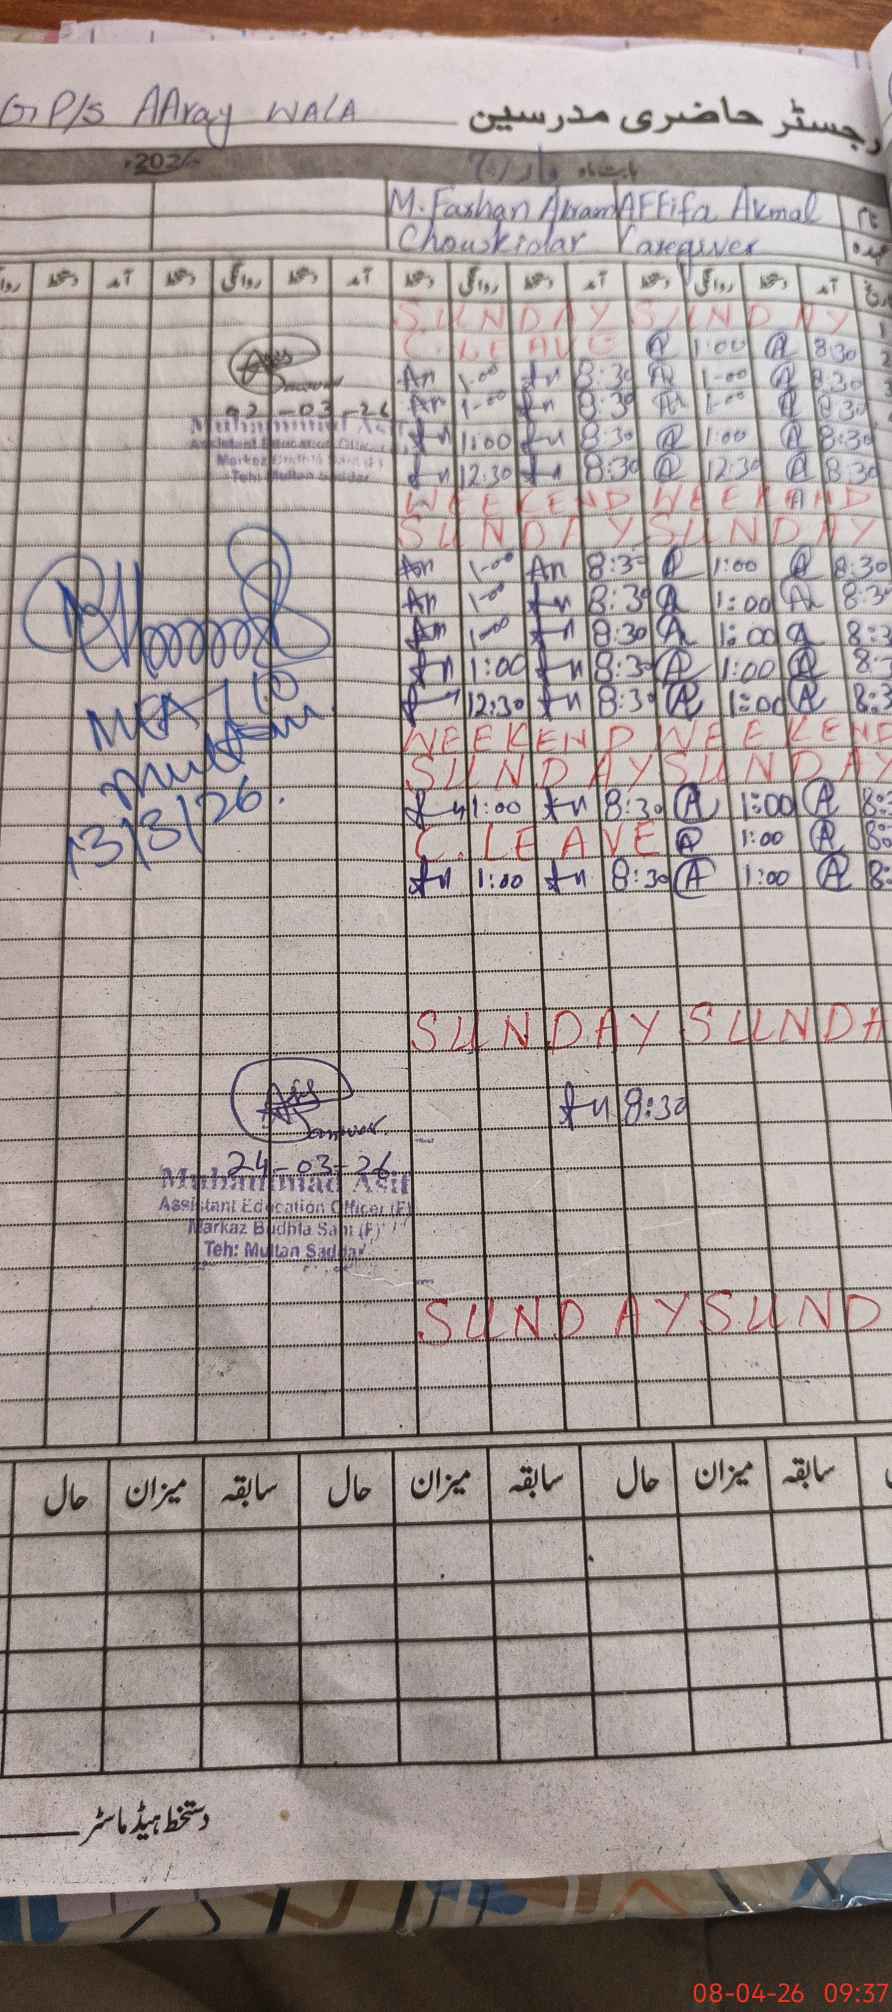 GP/s AAray WALA رجسٹر حاضری مدرسین
بابت ماہ مارچ 202
M. Farhan Akram AFFifa Akmal نام
Chowkidar Caregiver عہدہ
آمد دستخط روانگی دستخط آمد دستخط روانگی دستخط آمد دستخط
SUNDAY SUNDAY
C. LEAVE A 1:00 A 8:30
An 1-00 An 8:30 A 1-00 A 8:30
An 1-00 An 8:30 A 1-00 A 8:30
An 1:00 An 8:30 A 1:00 A 8:30
An 12:30 An 8:30 A 12:30 A 8:30
WEEKEND WEEKAND
SUNDAY SUNDAY
An 1-00 An 8:30 A 1:00 A 8:30
An 1-00 An 8:30 A 1:00 A 8:30
An 1-00 An 8:30 A 1:00 A 8:3
An 1:00 An 8:30 A 1:00 A 8:3
12:30 An 8:30 A 1:00 A 8:3
WEEKEND WEEKEND
SUNDAY SUNDAY
An 1:00 An 8:30 A 1:00 A 8:
C. LEAVE A 1:00 A 8:
An 1:00 An 8:30 A 1:00 A 8:
SUNDAY SUNDA
An 8:30
SUNDAY SUND
02-03-26
Muhammad Asif
Assistant Education Officer
Markaz Budhla Sant (F)
Teh: Multan Saddar
MEA 110
multan
13/3/26.
24-03-26
Muhammad Asif
Assistant Education Officer (F)
Markaz Budhla Sant (F)
Teh: Multan Saddar
سابقہ میزان حال سابقہ میزان حال سابقہ میزان حال
دستخط ہیڈ ماسٹر
08-04-26 09:37